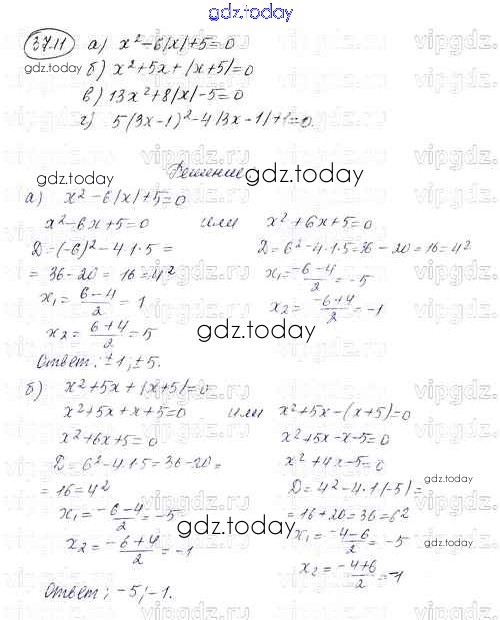 gdz.today
37.11 а) x² – 6|x| + 5 = 0
gdz.today б) x² + 5x + |x + 5| = 0
в) 13x² + 8|x| – 5 = 0
г) 5(3x – 1)² – 4|3x – 1| + 1 = 0.
Решение
gdz.today gdz.today
а) x² – 6|x| + 5 = 0
x² – 6x + 5 = 0 или x² + 6x + 5 = 0
D = (–6)² – 4·1·5 = D = 6² – 4·1·5 = 36 – 20 = 16 = 4²
= 36 – 20 = 16 = 4² x₁ = (–6 – 4)/2 = –5
x₁ = (6 – 4)/2 = 1 x₂ = (–6 + 4)/2 = –1
x₂ = (6 + 4)/2 = 5
gdz.today
Ответ: ±1; ±5.
б) x² + 5x + |x + 5| = 0
x² + 5x + x + 5 = 0 или x² + 5x – (x + 5) = 0
x² + 6x + 5 = 0 x² + 5x – x – 5 = 0
D = 6² – 4·1·5 = 36 – 20 = x² + 4x – 5 = 0
= 16 = 4² D = 4² – 4·1·(–5) =
gdz.today
x₁ = (–6 – 4)/2 = –5 = 16 + 20 = 36 = 6²
gdz.today
x₂ = (–6 + 4)/2 = –1 x₁ = (–4 – 6)/2 = –5
gdz.today
x₂ = (–4 + 6)/2 = –1
Ответ: –5; –1.
gdz.today